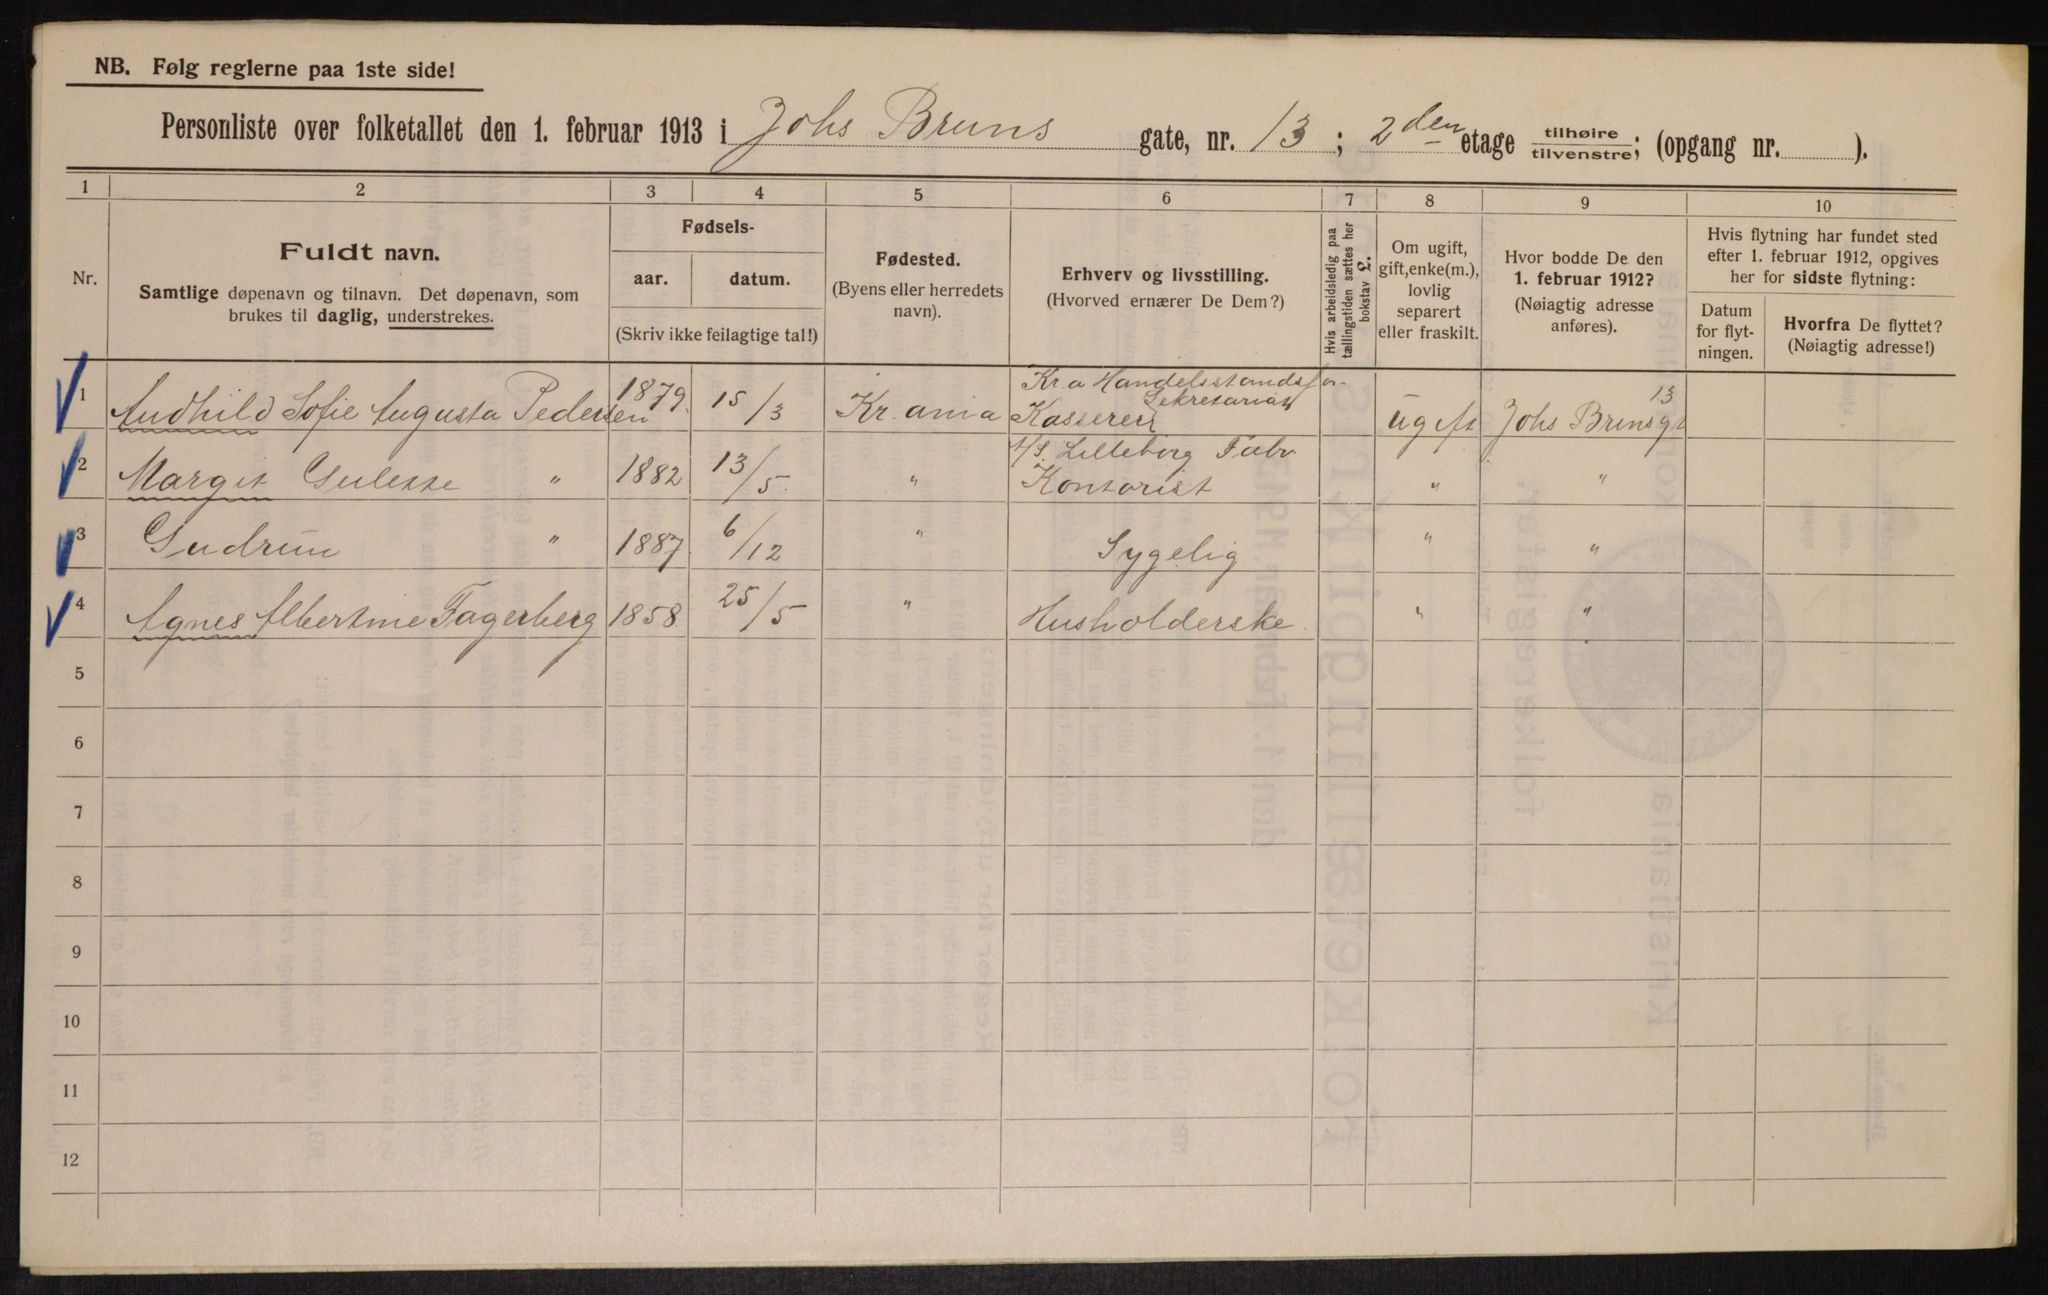 NB. Følg reglerne paa 1ste side!
Personliste over folketallet den 1. februar 1913 i Johs Bruns gate, nr. 13; 2den etage tilhøire / tilvenstre; (opgang nr. ).
1 2 3 4 5 6 7 8 9 10
Nr.
Fuldt navn.
Samtlige døpenavn og tilnavn. Det døpenavn, som
brukes til daglig, understrekes.
Fødsels-
aar. datum.
(Skriv ikke feilagtige tal!)
Fødested.
(Byens eller herredets
navn).
Erhverv og livsstilling.
(Hvorved ernærer De Dem?)
Hvis arbeidsledig paa
tællingstiden sættes her
bokstav L.
Om ugift,
gift, enke(m.),
lovlig
separert
eller fraskilt.
Hvor bodde De den
1. februar 1912?
(Nøiagtig adresse
anføres).
Hvis flytning har fundet sted
efter 1. februar 1912, opgives
her for sidste flytning:
Datum
for flyt-
ningen.
Hvorfra De flyttet?
(Nøiagtig adresse!)
Kr.a Handelsstandsfor-
Sekretariat 13
1 Audhild Sofie Augusta Pedersen 1879. 15/3 Kr.ania Kasserer ugift Johs Brunsgt
A/S. Lilleborg Fabr
2 Margit " 1882 13/5. " Kontorist " "
3 Gudrun " 1887 6/12 " Sygelig " "
4 Agnes Albertine Fagerberg 1858 25/5 " Husholderske. " "
5
6
7
8
9
10
11
12